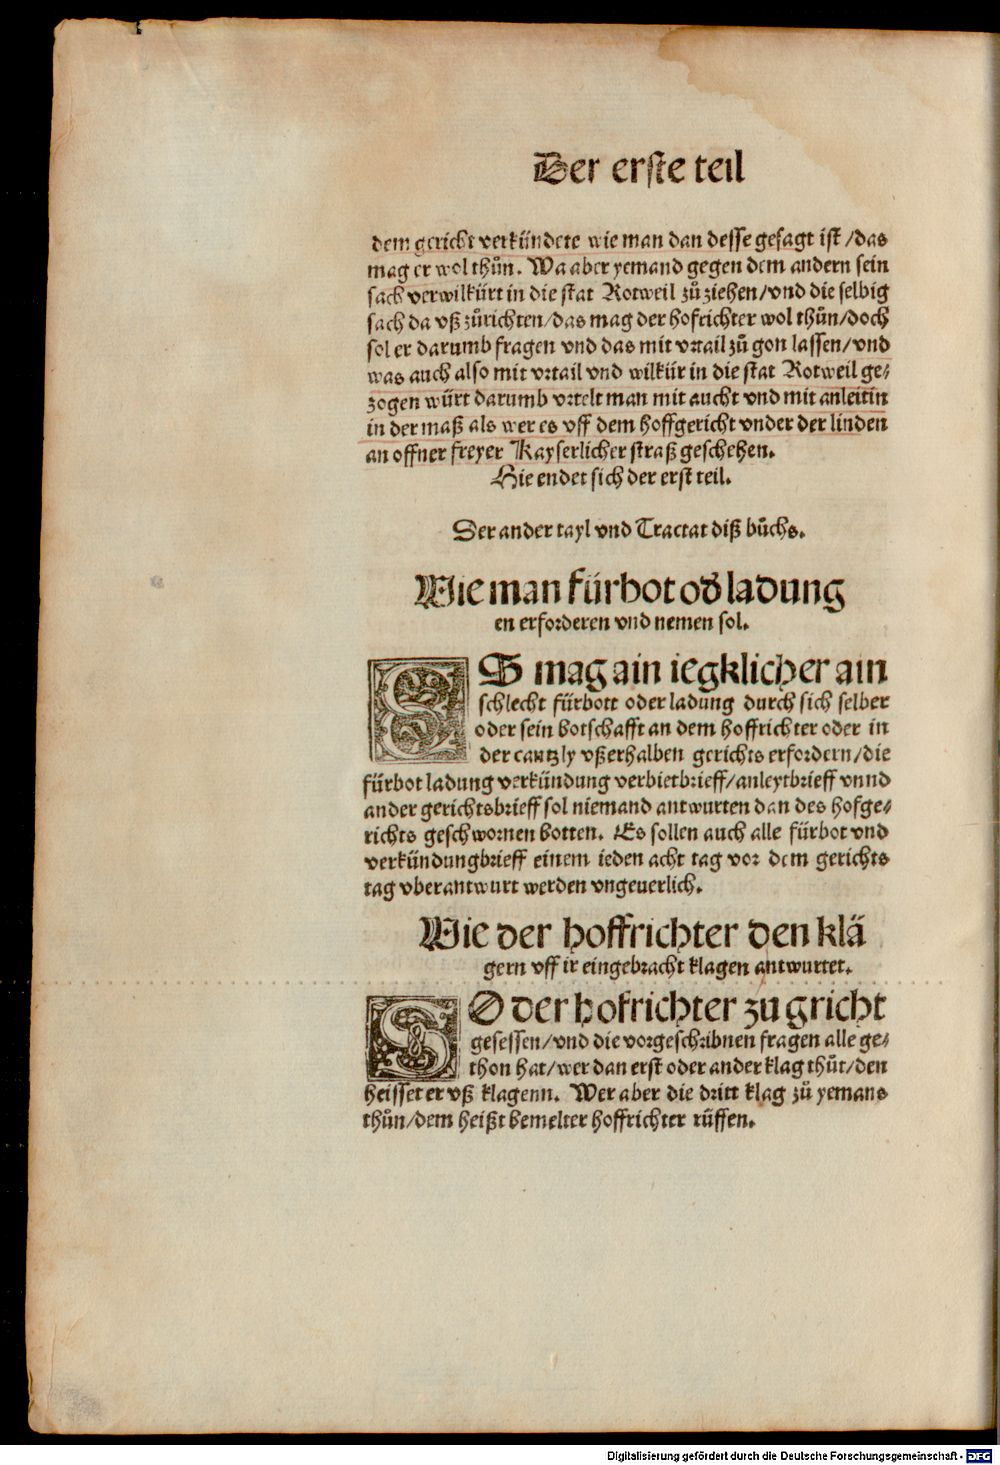 Der erste teil
dem gericht verkündete wie man dan desse gesagt ist /das
mag er wol thůn. Wa aber yemand gegen dem andern sein
sach verwilkürt in die stat Rotweil zů ziehen/vnd die selbig
sach da vß zůrichten/das mag der hofrichter wol thůn/doch
sol er darumb fragen vnd das mit vrtail zů gon lassen/vnd
was auch also mit vrtail vnd wilkür in die stat Rotweil ge⸗
zogen würt darumb vrtelt man mit aucht vnd mit anleitin
in der maß als wer es vff dem hoffgericht vnder der linden
an offner freyer Kayserlicher straß geschehen.
Hie endet sich der erst teil.
Der ander tayl vnd Tractat diß bůchs.
Wie man fürbot oď ladung
en erforderen vnd nemen sol.
S mag ain iegklicher ain
schlecht fürbott oder ladung durch sich selber
oder sein botschafft an dem hoffrichter oder in
der cantzly vßerhalben gerichts erfordern/die
fürbot ladung verkündung verbietbrieff/anleytbrieff vnnd
ander gerichtsbrieff sol niemand antwurten dan des hofge⸗
richts geschwornen botten. Es sollen auch alle fürbot vnd
verkündungbrieff einem ieden acht tag vor dem gerichts
tag vberantwurt werden vngeuerlich.
Wie der hoffrichter den klä
gern vff ir eingebracht klagen antwurtet.
S O der hofrichter zu gricht
gesessen/vnd die vorgeschribnen fragen alle ge⸗
thon hat/wer dan erst oder ander klag thůt/den
heisset er vß klagenn. Wer aber die dritt klag zů yemans
thůn/dem heißt bemelter hoffrichter rüffen.
Digitalisierung gefördert durch die Deutsche Forschungsgemeinschaft - DFG